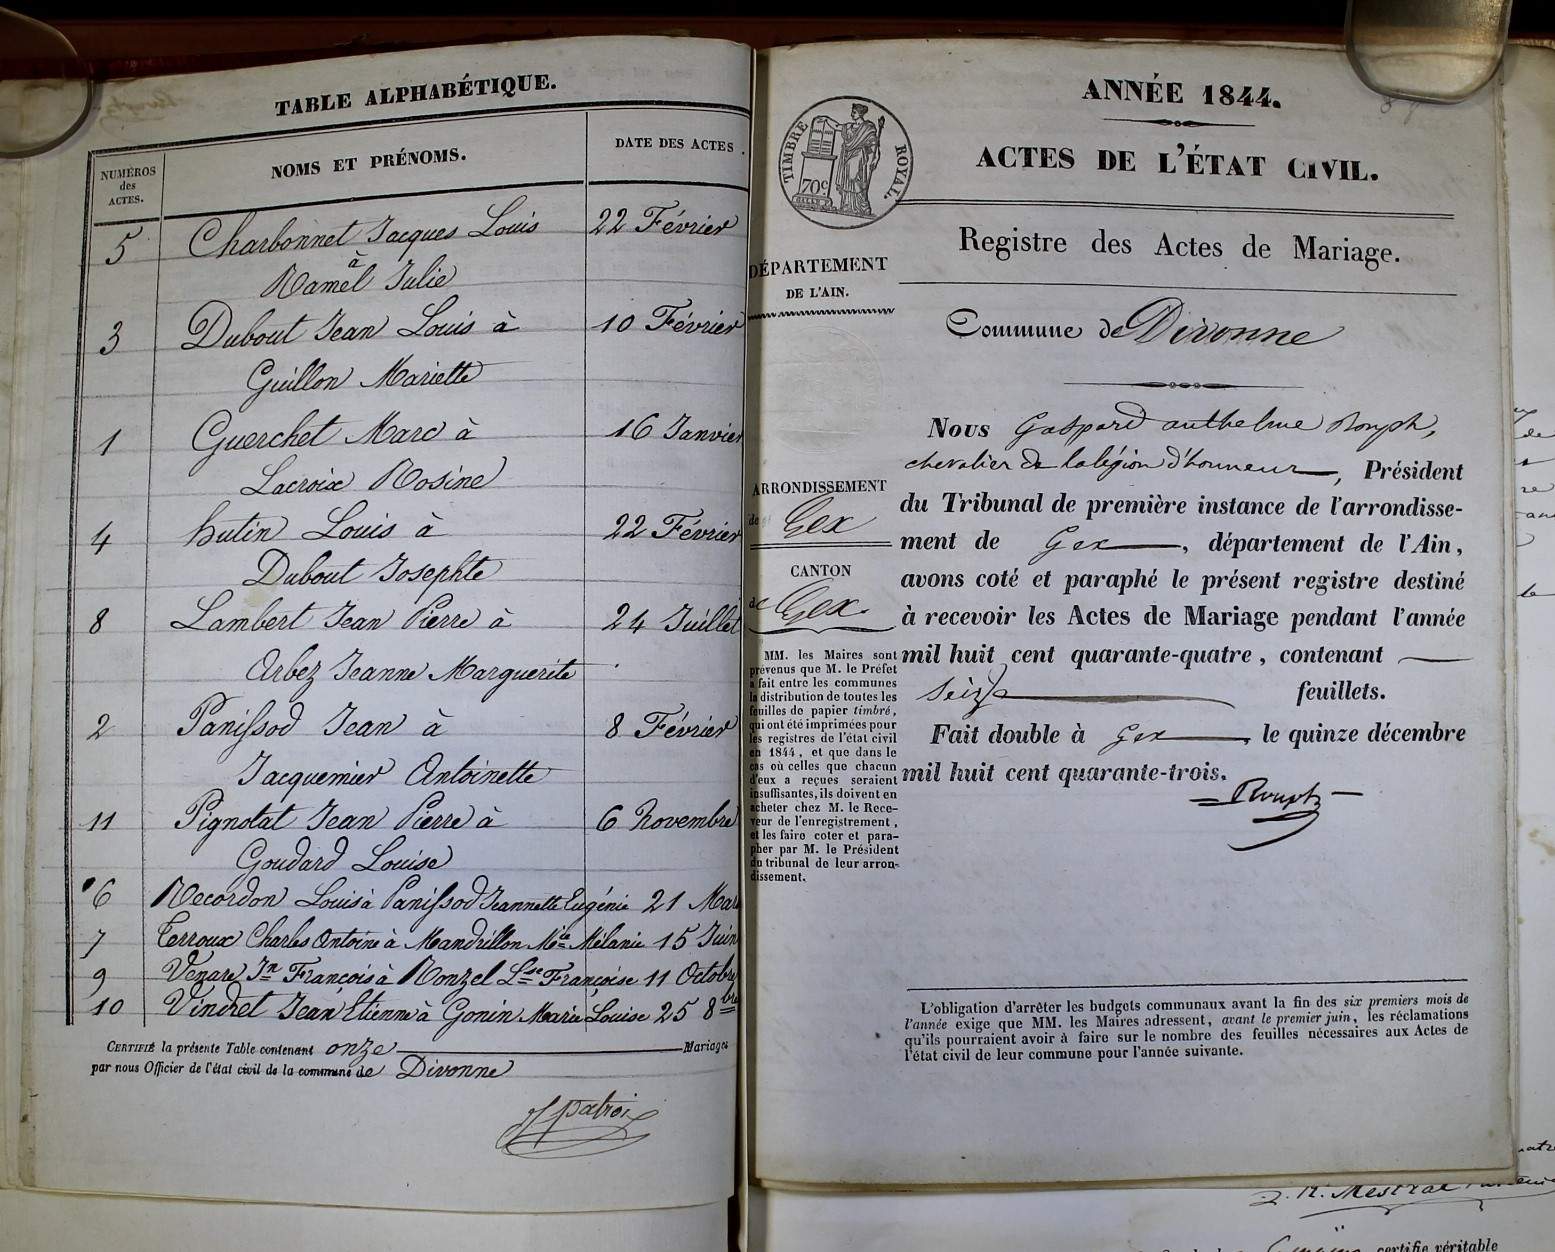 TABLE ALPHABÉTIQUE.
NUMÉROS des ACTES.
NOMS ET PRÉNOMS.
DATE DES ACTES.
5 Charbonnet Jacques Louis 22 Février
à
Ramel Julie
3 Dubout Jean Louis à 10 Février
Guillon Mariette
1 Guerchet Marc à 16 Janvier
Lacroix Rosine
4 hutin Louis à 22 Février
Dubout Josephte
8 Lambert Jean Pierre à 24 Juillet
Arbez Jeanne Marguerite
2 Panissod Jean à 8 Février
Jacquemier Antoinette
11 Pignolat Jean Pierre à 6 Novembre
Goudard Louise
6 Recordon Louis à Panissod Jeannette Eugénie 21 Mars
7 Terroux Charles Antoine à Mandrillon Mie Mélanie 15 Juin
9 Venare Jn François à Ronzel Lse Françoise 11 Octobre
10 Vindret Jean Etienne à Gonin Marie Louise 25 8bre
CERTIFIÉ la présente Table contenant onze Mariages
par nous Officier de l'état civil de la commune de Divonne
ANNÉE 1844.
ACTES DE L'ÉTAT CIVIL.
TIMBRE ROYAL.
70c
DÉPARTEMENT
DE L'AIN.
Registre des Actes de Mariage.
Commune de Divonne
ARRONDISSEMENT
de Gex
CANTON
de Gex.
MM. les Maires sont
prévenus que M. le Préfet
a fait entre les communes
la distribution de toutes les
feuilles de papier timbré,
qui ont été imprimées pour
les registres de l'état civil
en 1844, et que dans le
cas où celles que chacun
d'eux a reçues seraient
insuffisantes, ils doivent en
acheter chez M. le Rece-
veur de l'enregistrement,
et les faire coter et para-
pher par M. le Président
du tribunal de leur arron-
dissement.
Nous Gaspard anthelme Rouph,
chevalier de la légion d'honneur, Président
du Tribunal de première instance de l'arrondisse-
ment de Gex, département de l'Ain,
avons coté et paraphé le présent registre destiné
à recevoir les Actes de Mariage pendant l'année
mil huit cent quarante-quatre, contenant
seize feuillets.
Fait double à Gex, le quinze décembre
mil huit cent quarante-trois.
L'obligation d'arrêter les budgets communaux avant la fin des six premiers mois de
l'année exige que MM. les Maires adressent, avant le premier juin, les réclamations
qu'ils pourraient avoir à faire sur le nombre des feuilles nécessaires aux Actes de
l'état civil de leur commune pour l'année suivante.
certifie véritable